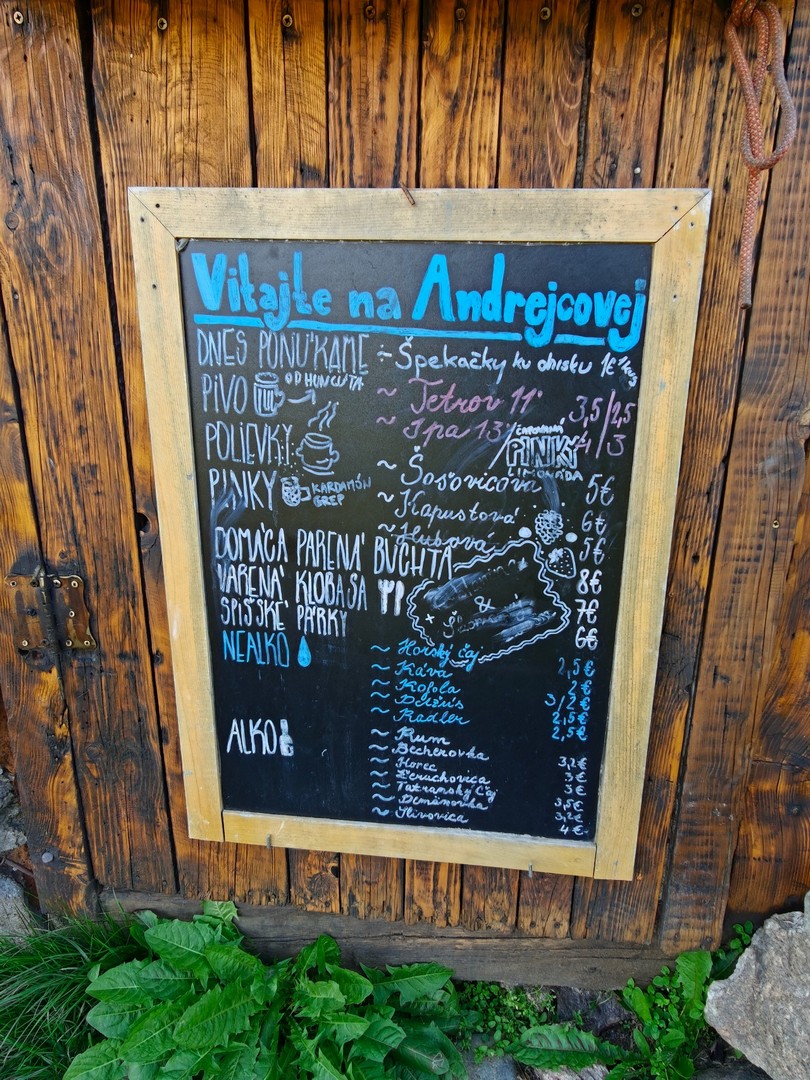 Vitajte na Andrejcovej
DNES PONÚKAME ~ Špekačky ku ohnisku 1€ 1kus
PIVO OD HUNCÚTA ~ Tetrov 11° 3,5/2,5
~ Ipa 13° 4/3
ČAPOVANÁ
PINKY
LIMONÁDA
POLIEVKY ~ Šošovicová 5€
PINKY KARDAMÓN GREP ~ Kapustová 6€
~ Hubová 5€
DOMÁCA PARENÁ BUCHTA 8€
VARENÁ KLOBÁSA 7€
SPIŠSKÉ PÁRKY 6€
&
NEALKO ~ Horský čaj 2,5€
~ Káva 2€
~ Kofola 3/2€
~ Džús 2,5€
~ Radler 2,5€
ALKO ~ Rum 3,2€
~ Becherovka 3€
~ Horec 3€
~ Žeruchovica 3,5€
~ Tatranský čaj 3,2€
~ Demänovka 4€
~ Slivovica